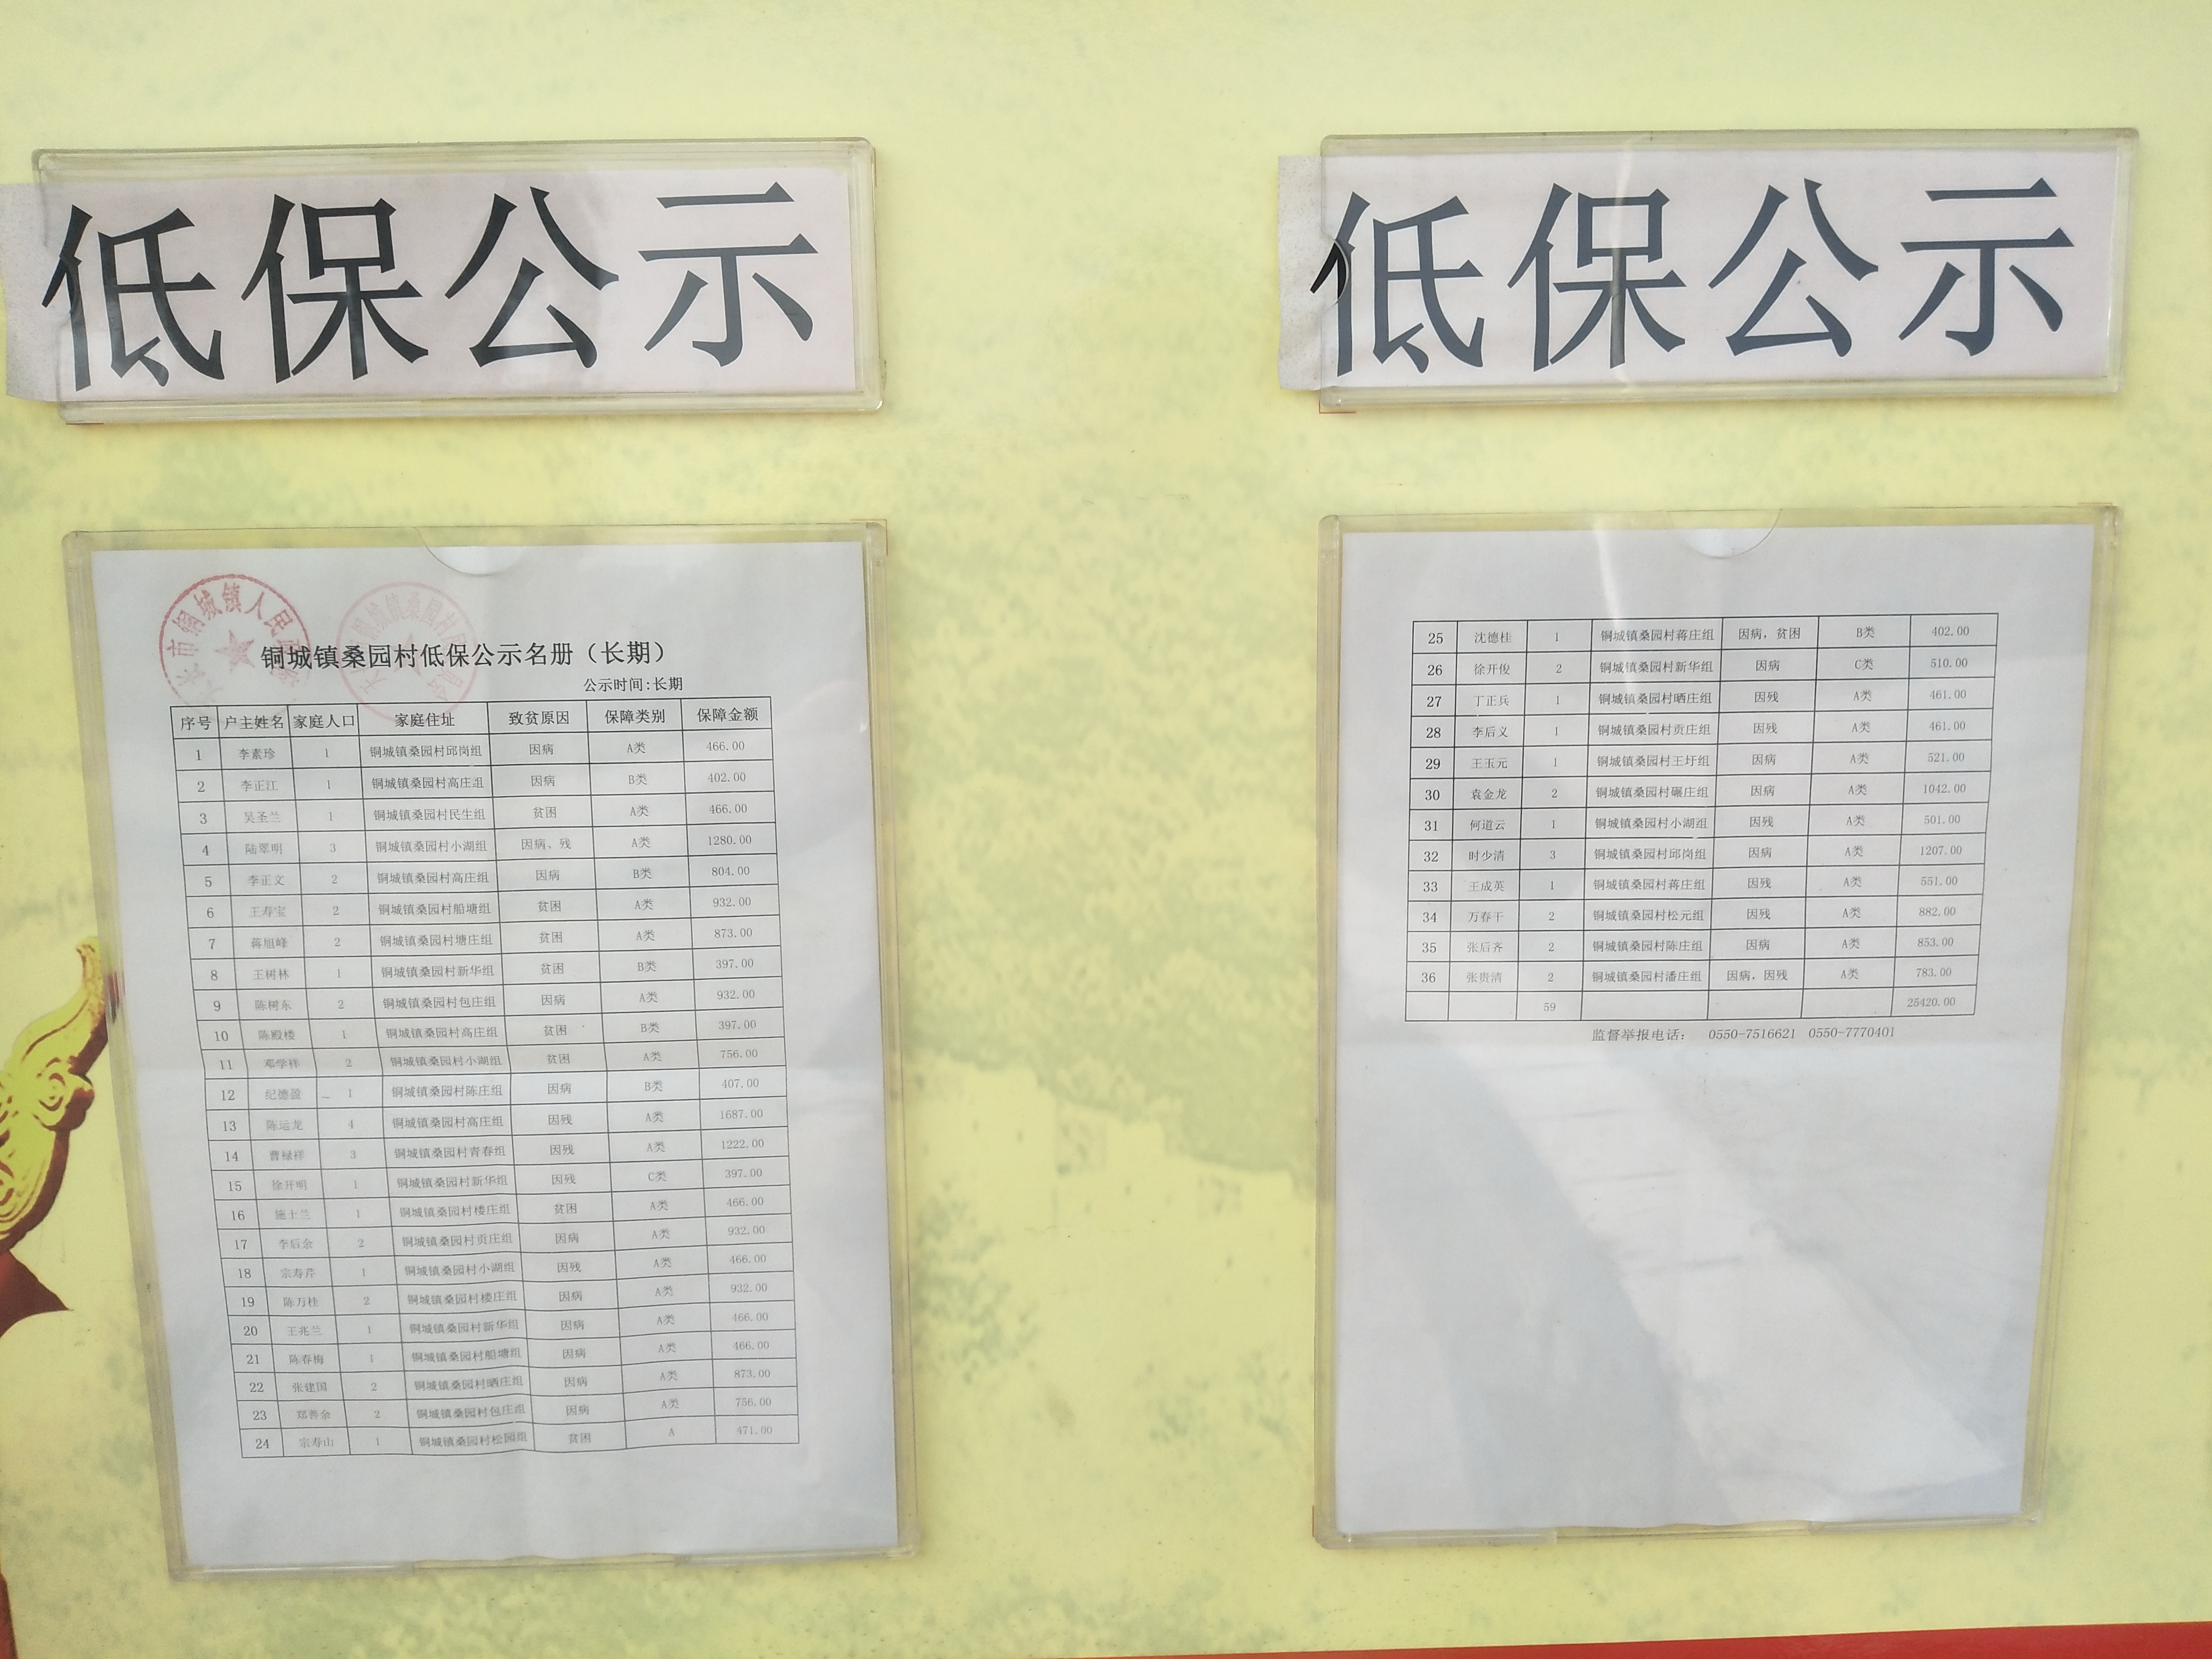 低保公示
铜城镇桑园村低保公示名册（长期）
公示时间:长期
序号 户主姓名 家庭人口 家庭住址 致贫原因 保障类别 保障金额
1 李素珍 1 铜城镇桑园村邱岗组 因病 A类 466.00
2 李正江 1 铜城镇桑园村高庄组 因病 B类 402.00
3 吴圣兰 1 铜城镇桑园村民生组 贫困 A类 466.00
4 陆翠明 3 铜城镇桑园村小湖组 因病、残 A类 1280.00
5 李正文 2 铜城镇桑园村高庄组 因病 B类 804.00
6 王寿宝 2 铜城镇桑园村船塘组 贫困 A类 932.00
7 蒋旭峰 2 铜城镇桑园村塘庄组 贫困 A类 873.00
8 王树林 1 铜城镇桑园村新华组 贫困 B类 397.00
9 陈树东 2 铜城镇桑园村包庄组 因病 A类 932.00
10 陈殿楼 1 铜城镇桑园村高庄组 贫困 B类 397.00
11 邓学祥 2 铜城镇桑园村小湖组 贫困 A类 756.00
12 纪德盈 1 铜城镇桑园村陈庄组 因病 B类 407.00
13 陈运龙 4 铜城镇桑园村高庄组 因残 A类 1687.00
14 曹禄祥 3 铜城镇桑园村青春组 因残 A类 1222.00
15 徐开明 1 铜城镇桑园村新华组 因残 C类 397.00
16 施士兰 1 铜城镇桑园村楼庄组 贫困 A类 466.00
17 李后余 2 铜城镇桑园村贡庄组 因病 A类 932.00
18 宗寿芹 1 铜城镇桑园村小湖组 因残 A类 466.00
19 陈万桂 2 铜城镇桑园村楼庄组 因病 A类 932.00
20 王兆兰 1 铜城镇桑园村新华组 因病 A类 466.00
21 陈春梅 1 铜城镇桑园村船塘组 因病 A类 466.00
22 张建国 2 铜城镇桑园村晒庄组 因病 A类 873.00
23 郑善余 2 铜城镇桑园村包庄组 因病 A类 756.00
24 宗寿山 1 铜城镇桑园村松园组 贫困 A 471.00
低保公示
25 沈德桂 1 铜城镇桑园村蒋庄组 因病，贫困 B类 402.00
26 徐开俊 2 铜城镇桑园村新华组 因病 C类 510.00
27 丁正兵 1 铜城镇桑园村晒庄组 因残 A类 461.00
28 李后义 1 铜城镇桑园村贡庄组 因残 A类 461.00
29 王玉元 1 铜城镇桑园村王圩组 因病 A类 521.00
30 袁金龙 2 铜城镇桑园村碾庄组 因病 A类 1042.00
31 何道云 1 铜城镇桑园村小湖组 因残 A类 501.00
32 时少清 3 铜城镇桑园村邱岗组 因病 A类 1207.00
33 王成英 1 铜城镇桑园村蒋庄组 因残 A类 551.00
34 万春干 2 铜城镇桑园村松元组 因残 A类 882.00
35 张后齐 2 铜城镇桑园村陈庄组 因病 A类 853.00
36 张贵清 2 铜城镇桑园村潘庄组 因病，因残 A类 783.00
59 25420.00
监督举报电话： 0550-7516621 0550-7770401